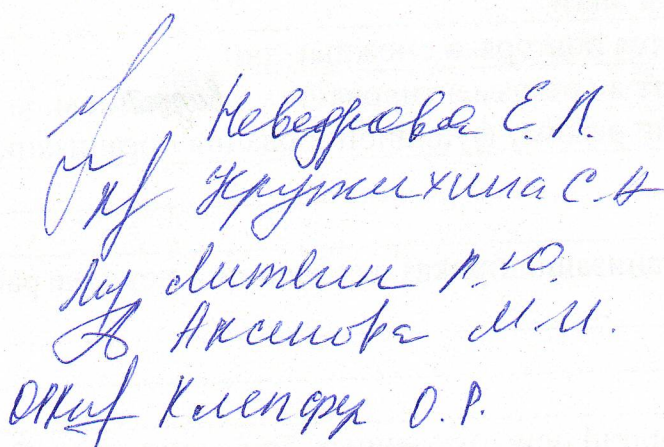 Неведрова Е. П.
Кружихина С. Н
Литвин Р. Ю.
Аксенова М. И.
Клепфер О. Р.